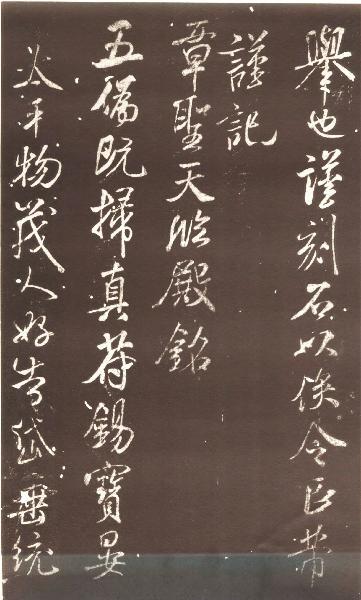 舉也謹刻石以俟令臣芾
謹記
章聖天臨殿銘
五僞既掃真符錫寶晏
太平物茂人好告岱垂統